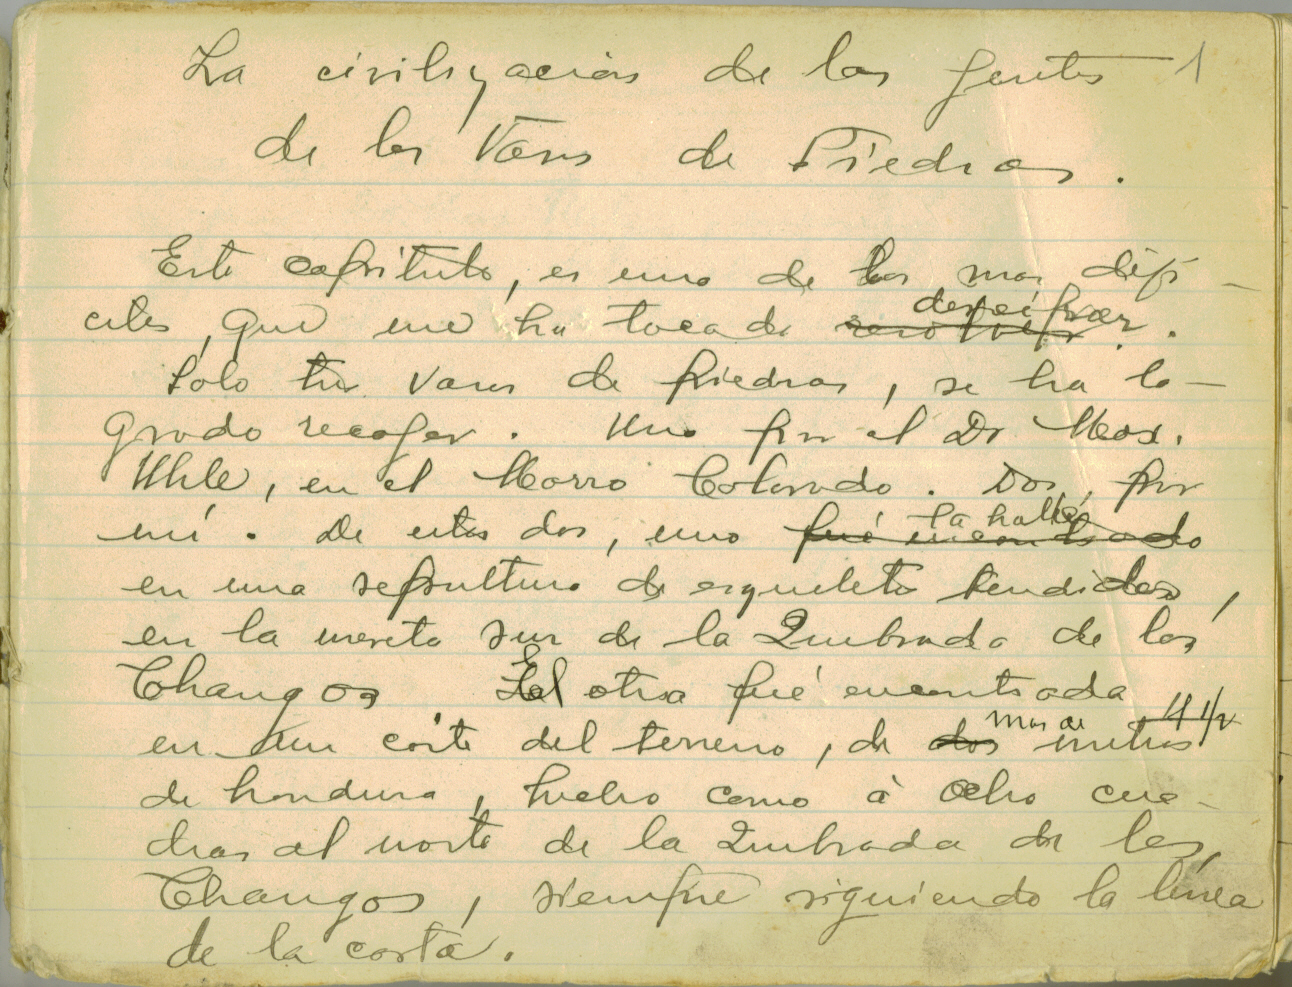 La civilización de las gentes 1
de los Vasos de Piedras.
Este capítulo, es uno de los mas difi-
ciles, que me ha tocado resolver descifrar.
Solo tres vasos de piedras, se ha lo-
grado recoger. Uno por el Dr Max.
Uhle, en el Morro Colorado. Dos, por
mí. De estos dos, uno fué encontrado la hallé
en una sepultura de esqueletos tendidos,
en la meseta sur de la Quebrada de los
Changos El otro fué encontrada
en un corte del terreno, de dos mas de metros 1/2
de hondura, hecho como á ocho cua-
dras al norte de la Quebrada de los
Changos, siempre siguiendo la línea
de la costa.